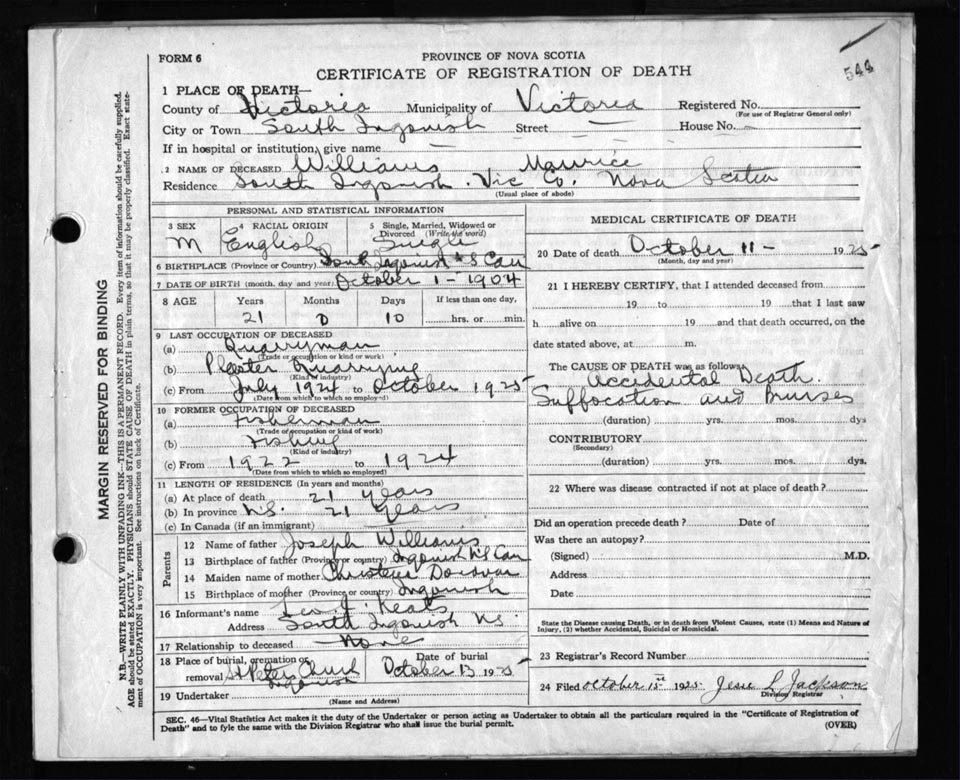 544
FORM 6
PROVINCE OF NOVA SCOTIA
CERTIFICATE OF REGISTRATION OF DEATH
1 PLACE OF DEATH—
County of Victoria Municipality of Victoria Registered No.
(For use of Registrar General only)
City or Town South Ingonish Street — House No. —
If in hospital or institution, give name —
2 NAME OF DECEASED Williams Maurice
Residence South Ingonish. Vic Co. Nova Scotia
(Usual place of abode)
PERSONAL AND STATISTICAL INFORMATION
3 SEX M
4 RACIAL ORIGIN English
5 Single, Married, Widowed or Divorced (Write the word) Single
6 BIRTHPLACE (Province or Country) South Ingonish N S Can
7 DATE OF BIRTH (month, day and year) October 1 - 1904
8 AGE Years Months Days If less than one day,
21 0 10 hrs. or min.
9 LAST OCCUPATION OF DECEASED
(a) Quarryman
(Trade or occupation or kind or work)
(b) Plaster Quarrying
(Kind of industry)
(c) From July 1924 to October 1925
(Date from which to which so employed)
10 FORMER OCCUPATION OF DECEASED
(a) Fisherman
(Trade of occupation or kind of work)
(b) Fishing
(Kind of industry)
(c) From 1922 to 1924
(Date from which to which so employed)
11 LENGTH OF RESIDENCE (In years and months)
(a) At place of death 21 years
(b) In province N.S. 21 years
(c) In Canada (if an immigrant)
Parents
12 Name of father Joseph Williams
13 Birthplace of father (Province or country) Ingonish N S Can
14 Maiden name of mother Donovan
15 Birthplace of mother (Province or country) Ingonish
16 Informant's name Leo J. Keats
Address South Ingonish N S.
17 Relationship to deceased None
18 Place of burial, cremation or removal St Peters Church Ingonish
Date of burial October 13 1925
19 Undertaker
(Name and Address)
MEDICAL CERTIFICATE OF DEATH
20 Date of death October 11 - 1925
(Month, day and year)
21 I HEREBY CERTIFY, that I attended deceased from
19 to 19 that I last saw
h alive on 19 and that death occurred, on the
date stated above, at m.
The CAUSE OF DEATH was as follows:
Accidental Death.
Suffocation and Bruises
(duration) yrs. mos. dys
CONTRIBUTORY
(Secondary)
(duration) yrs. mos. dys.
22 Where was disease contracted if not at place of death?
Did an operation precede death? Date of
Was there an autopsy?
(Signed) M.D.
Address
Date
State the Disease causing Death, or in death from Violent Causes, state (1) Means and Nature of
Injury, (2) whether Accidental, Suicidal or Homicidal.
23 Registrar's Record Number
24 Filed October 1925 Jesse L Jackson
Division Registrar
SEC. 46—Vital Statistics Act makes it the duty of the Undertaker or person acting as Undertaker to obtain all the particulars required in the "Certificate of Registration of
Death" and to fyle the same with the Division Registrar who shall issue the burial permit.
(OVER)
MARGIN RESERVED FOR BINDING
N.B.—WRITE PLAINLY WITH UNFADING INK—THIS IS A PERMANENT RECORD. Every item of information should be carefully supplied.
AGE should be stated EXACTLY. PHYSICIANS should STATE CAUSE OF DEATH in plain terms, so that it may be properly classified. Exact state-
ment of OCCUPATION is very important. See instructions on back of Certificate.